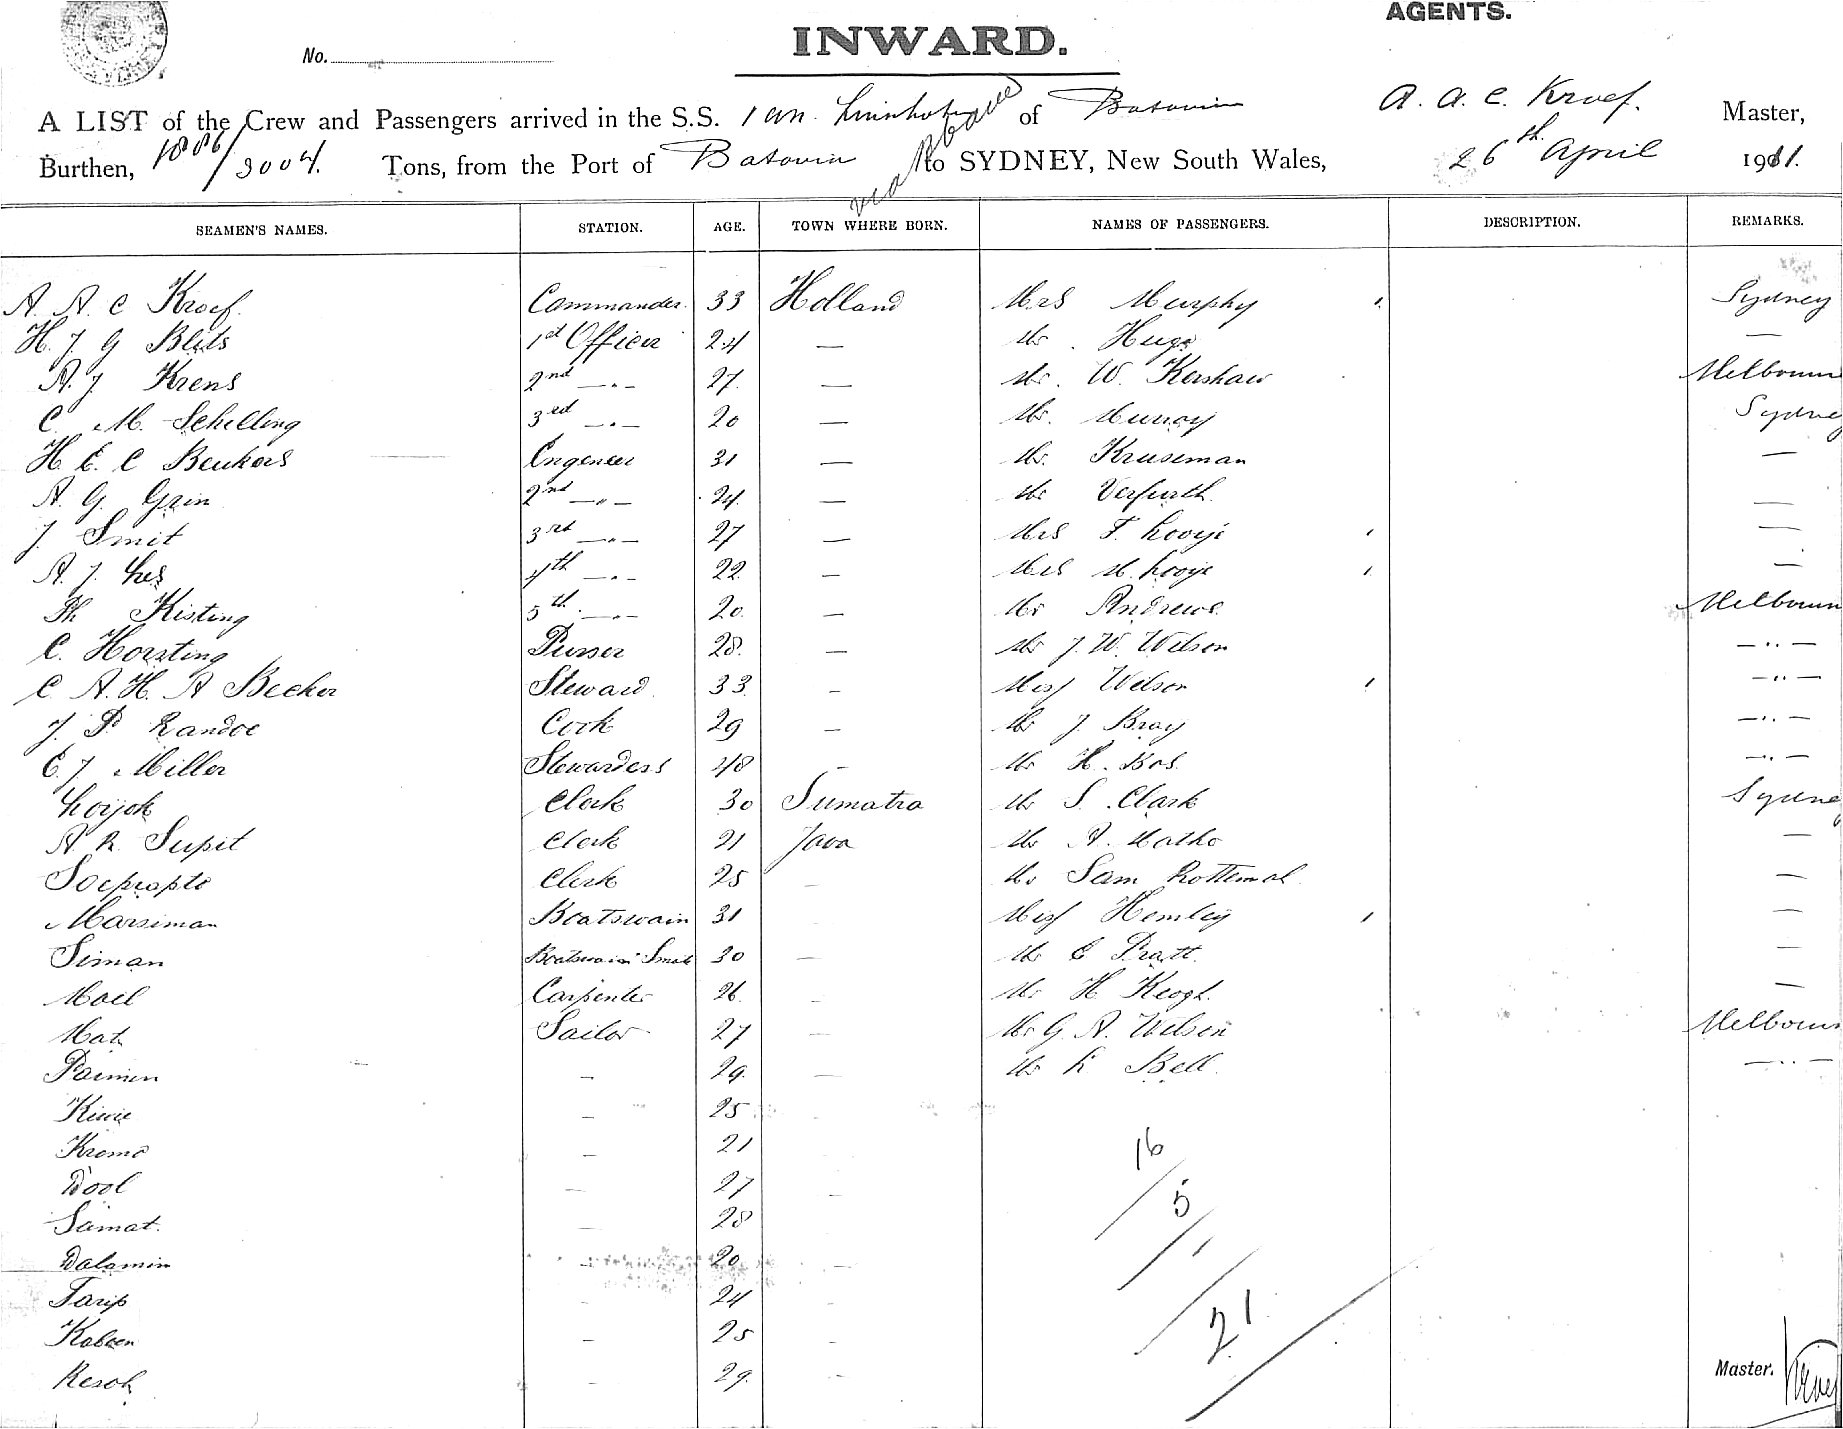 AGENTS.
INWARD.
No.
A LIST of the Crew and Passengers arrived in the S.S. Van Linschoten of Batavia A. A. C. Kroef. Master,
Burthen, 1886/3004. Tons, from the Port of Batavia via Brisbane to SYDNEY, New South Wales, 26th April 1911.
SEAMEN'S NAMES. STATION. AGE. TOWN WHERE BORN. NAMES OF PASSENGERS. DESCRIPTION. REMARKS.
A. A. C Kroef. Commander. 33 Holland Mrs Murphy Sydney
H. J G Blits 1st Officer 24 — Mr. Hugo —
A. J. Krens 2nd —"— 27. — Mr. W. Kershaw Melbourne
C. M. Schelling 3rd —"— 20 — Mr. Murray Sydney
H. E. C Beukers Engeneer 31 — Mr. Kruseman —
A. G. Grin 2nd —"— 24. — Mr Verfurth. —
J. Smit 3rd —"— 27 — Mrs F. Looije —
A. J. 4th —"— 22 — Mrs M. Looije —
Ph Kisting 5th —"— 20. — Mr Andrews. Melbourn
C. Horsting Purser 28. — Mr J. W. Wilson —"—
C. A. H. A Becker Steward. 33 - Miss Wilson —"—
J. P Randoe Cook 29 - Mr J. Bray —"—
C. J. Miller Stewardess 48 - Mr H. Bos. —"—
Loijok Clerk 30 Sumatra Mr S. Clark Sydney
A. R. Supit Clerk 21 Java Mr A. —
Soeprapto Clerk 25 — Mr Sam Rottemah —
Marsiman Boatswain 31 Miss Hemley —
Siman Boatswain Smate 30 — Mr C Pratt. —
Mail Carpenter 26. - Mr H Keogh. —
Mat Sailor 27 — Mr G. A. Wilson Melbourn
Paimen - 29. — Mr R Bell. —"—
Kiwie - 25
Kromo - 21 - 16
Dool - 27 -
Samat. - 28 - 5
Dalamin - 20 - 1
Tarip - 24 -
Kabeen - 25 - 21
Kesoh - 29. - Master. Kroef